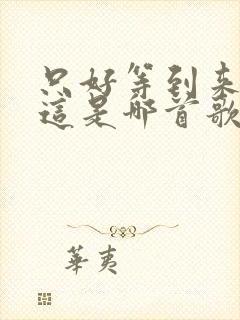 只好等到來
這是哪首歌
華夷